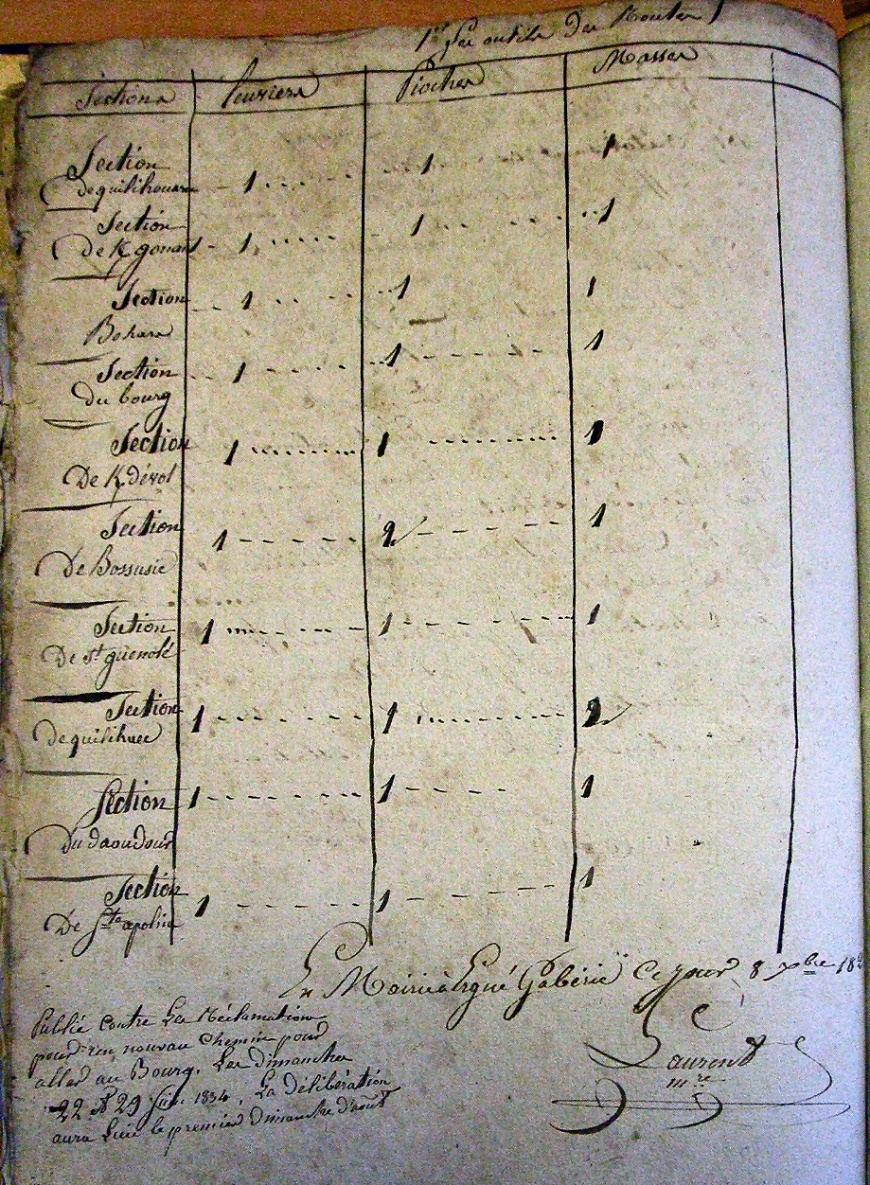 1er les outils Des Routes
Sections Leuviers Pioches Masses
Section
de quilihouarn 1 1 1
Section
de K gonan 1 1 1
Section 1 1 1
Bohars
Section 1 1 1
du bourg
Section 1 1 1
De K dévot
Section 1 2 1
De Bossusic
Section 1 1 1
De st guenolé
Section 1 1 2
de quilihuec
Section 1 1 1
Du daoudour
Section 1 1 1
De Ste apoline
En Mairie à Ergué Gabéric Ce jour 8 xbre 18
Laurent
mre
Publié Contre La Réclamation
pour un nouveau Chemin pour
aller au Bourg. Les dimanches
22 et 29 1834. La délibération
aura Lieu le premier dimanche d'août